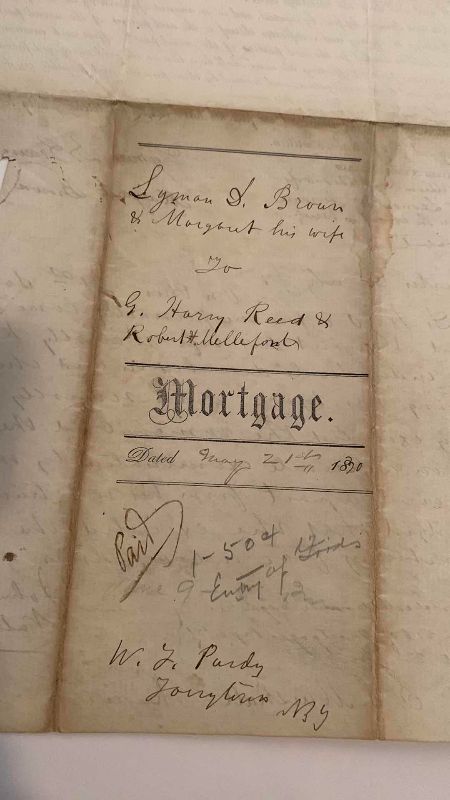 Lyman S. Brown
& Margaret his wife
To
G. Harry Reed &
Robert H. Melleford
Mortgage.
Dated May 21st 1870
Paid
1-504
9 Entry of
W. F. Purdy
Tarrytown
NY